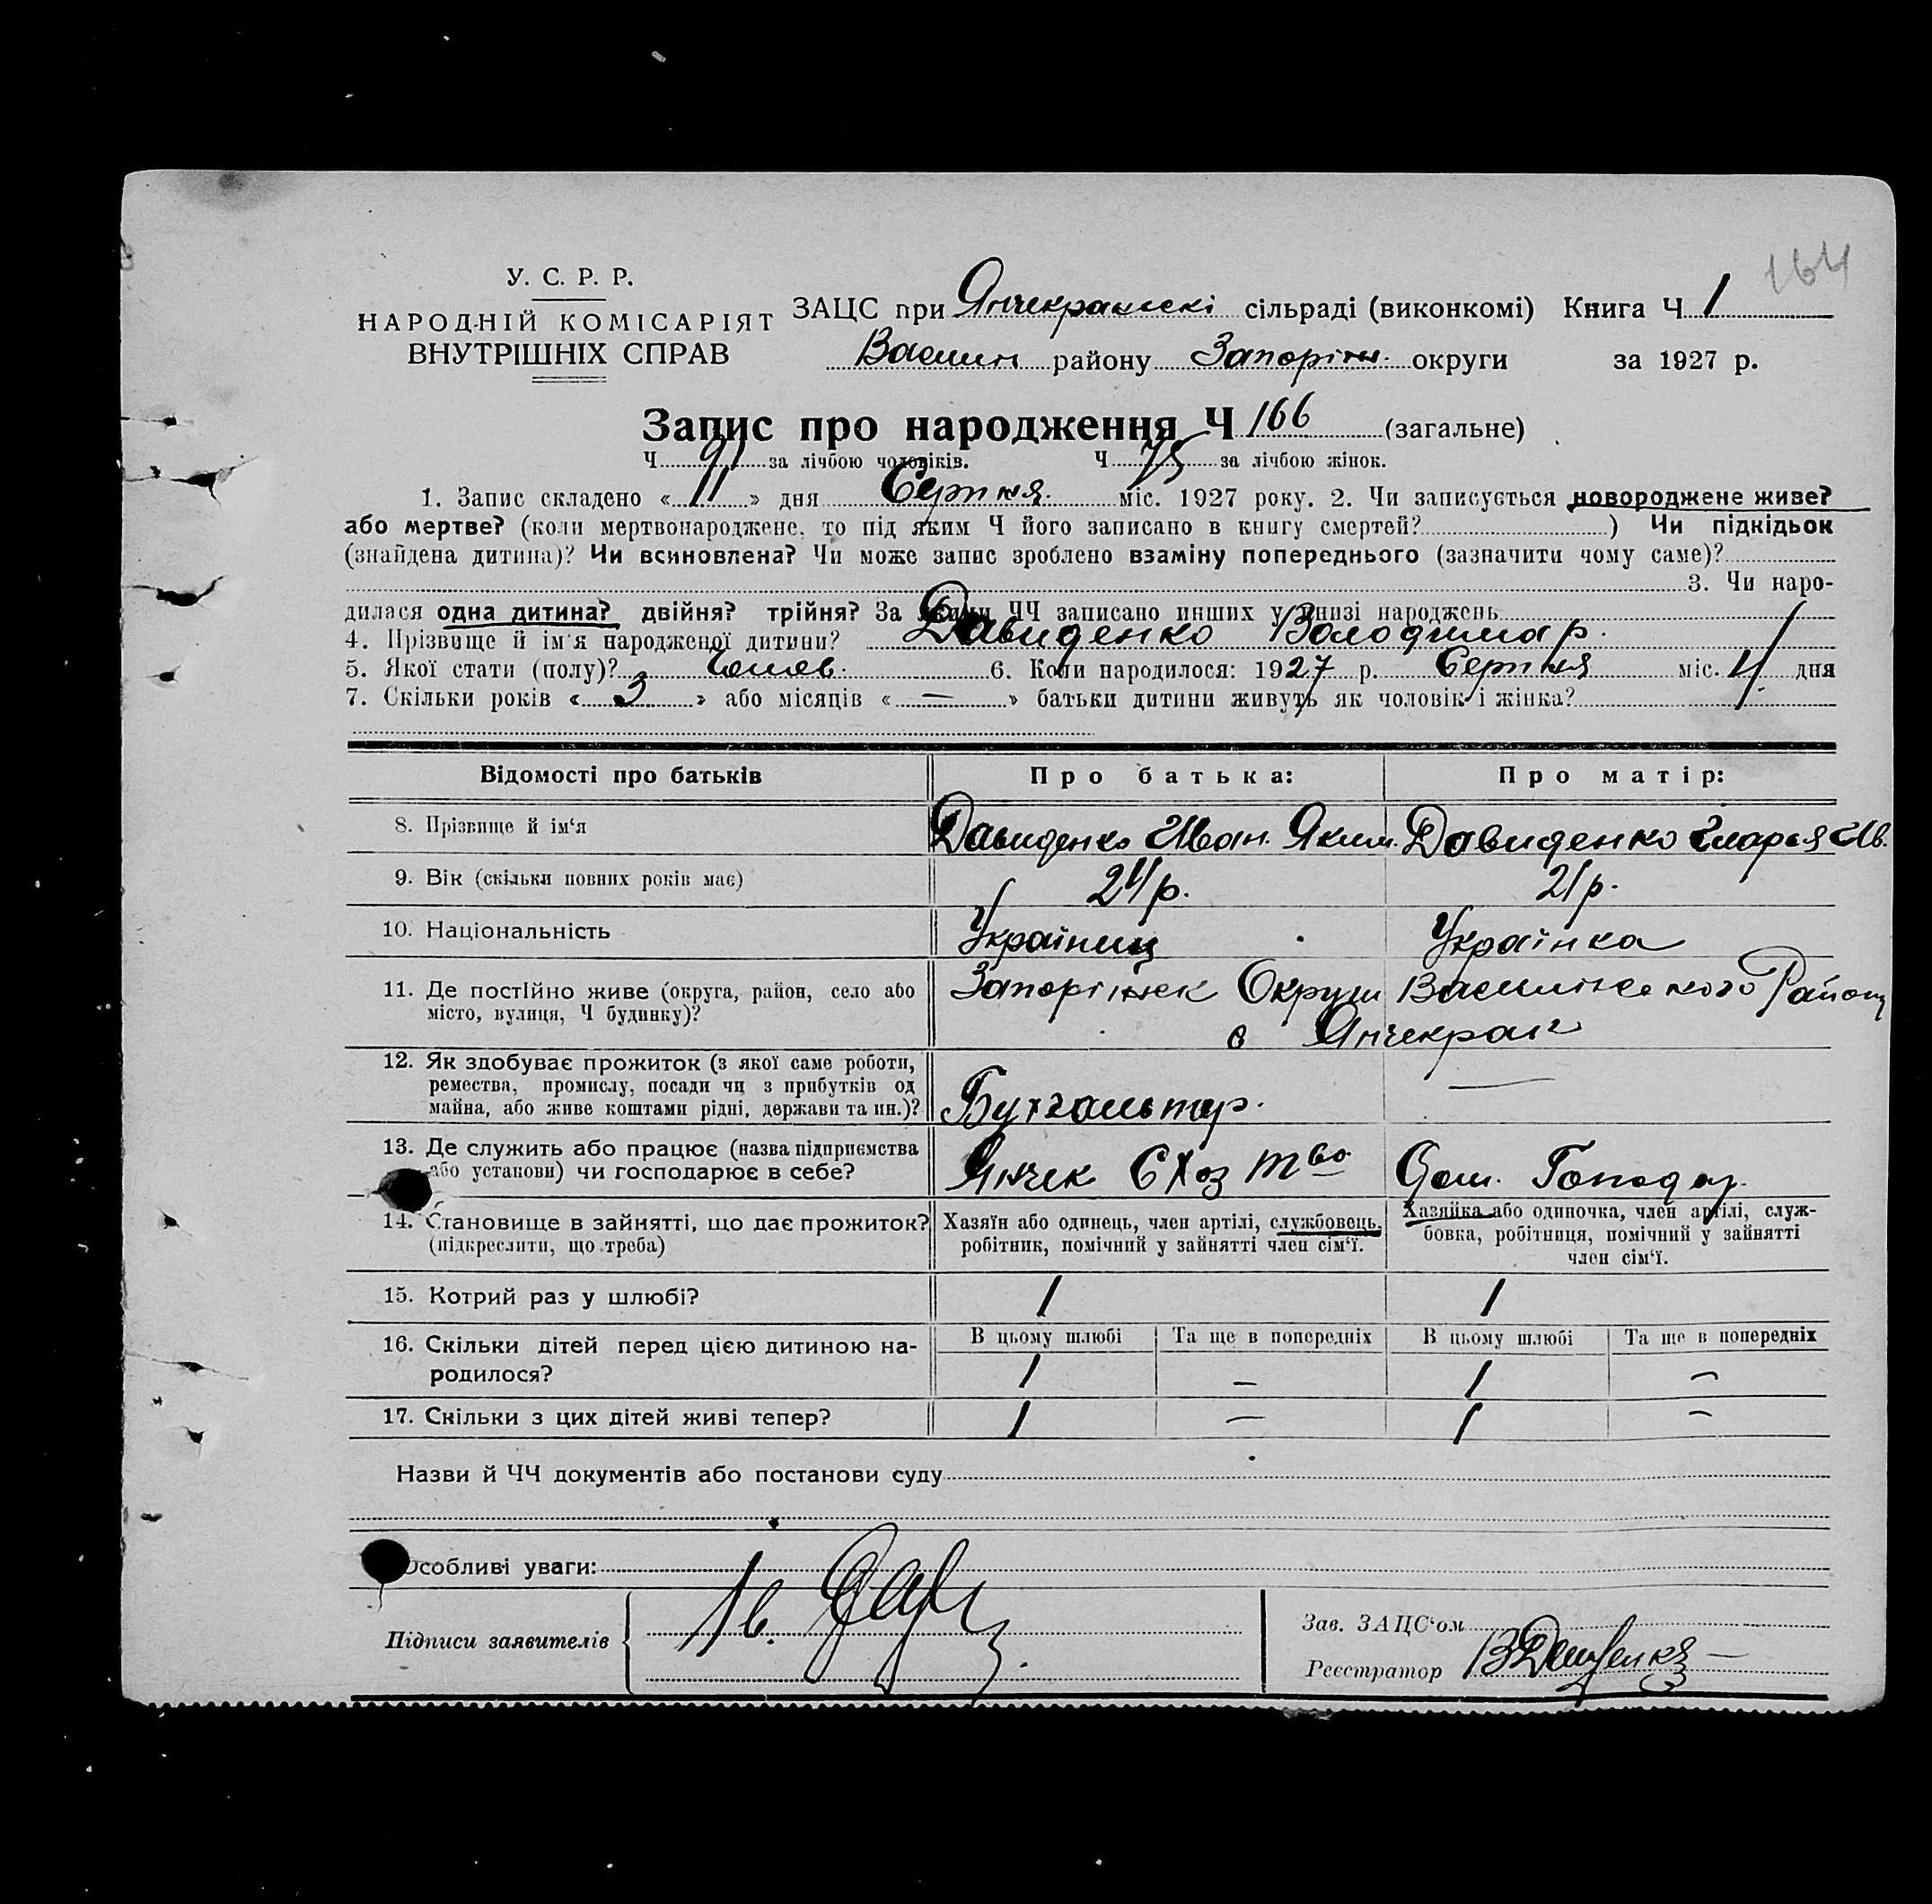 164
У. С. Р. Р.
НАРОДНІЙ КОМІСАРІЯТ
ВНУТРІШНІХ СПРАВ
ЗАЦС при Янчекрацскі сільраді (виконкомі) Книга Ч 1
Васили району Запоріж. округи за 1927 р.
Запис про народження Ч 166 (загальне)
Ч 91 за лічбою чоловіків. Ч 75 за лічбою жінок.
1. Запис складено « 11 » дня Серпня міс. 1927 року. 2. Чи записується новороджене живе?
або мертве? (коли мертвонароджене, то під яким Ч його записано в книгу смертей? ) Чи підкідьок
(знайдена дитина)? Чи всиновлена? Чи може запис зроблено взаміну попереднього (зазначити чому саме)?
3. Чи наро-
дилася одна дитина? двійня? трійня? За якими ЧЧ записано инших у книзі народжень
4. Прізвище й ім'я народженої дитини? Давиденко Володимар.
5. Якої стати (полу)? Чолов. 6. Коли народилося: 1927 р. Серпня міс. 4 дня
7. Скільки років « 3 » або місяців « — » батьки дитини живуть як чоловік і жінка?
Відомості про батьків Про батька: Про матір:
8. Прізвище й ім'я Давиденко Іван. Яким. Давиденко Марья Ив.
9. Вік (скільки повних років має) 24 р. 21 р.
10. Національність Українец Українка
11. Де постійно живе (округа, район, село або
місто, вулиця, Ч будинку)?
Запоріжск Округи Василівского Району
с Янчекрак
12. Як здобуває прожиток (з якої саме роботи,
ремества, промислу, посади чи з прибутків од
майна, або живе коштами рідні, держави та ин.)?
Бухгальтер. —
13. Де служить або працює (назва підприємства
або установи) чи господарює в себе?
Янчек СХоз тво Дом. Господар.
14. Становище в зайнятті, що дає прожиток?
(підкреслити, що треба)
Хазяїн або одинець, член артілі, службовець,
робітник, помічний у зайнятті член сім'ї.
Хазяйка або одиночка, член артілі, служ-
бовка, робітниця, помічний у зайнятті
член сім'ї.
15. Котрий раз у шлюбі? 1 1
16. Скільки дітей перед цією дитиною на-
родилося?
В цьому шлюбі Та ще в попередніх В цьому шлюбі Та ще в попередніх
1 — 1 —
17. Скільки з цих дітей живі тепер? 1 — 1 —
Назви й ЧЧ документів або постанови суду
Особливі уваги:
Підписи заявителів
Зав. ЗАЦС'ом
Реєстратор